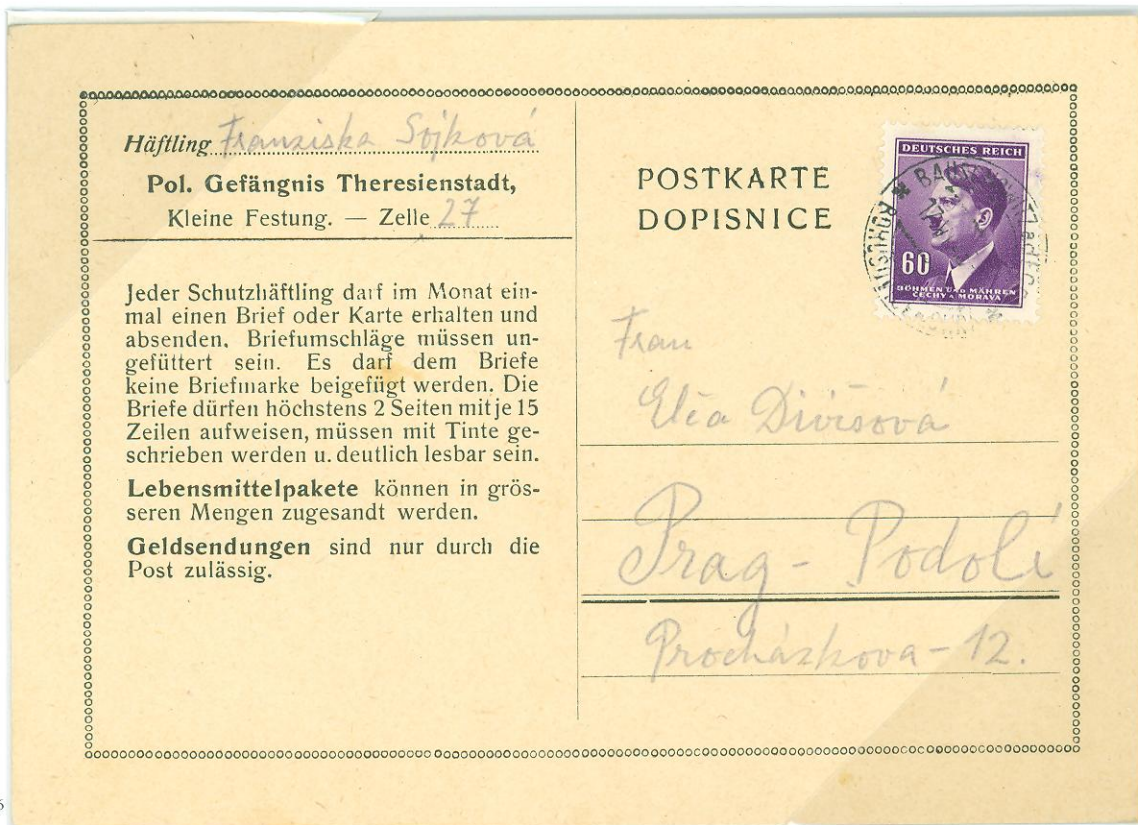 Häftling Franziska Sojková
Pol. Gefängnis Theresienstadt,
Kleine Festung. — Zelle 27
Jeder Schutzhäftling darf im Monat ein-
mal einen Brief oder Karte erhalten und
absenden. Briefumschläge müssen un-
gefüttert sein. Es darf dem Briefe
keine Briefmarke beigefügt werden. Die
Briefe dürfen höchstens 2 Seiten mit je 15
Zeilen aufweisen, müssen mit Tinte ge-
schrieben werden u. deutlich lesbar sein.
Lebensmittelpakete können in grös-
seren Mengen zugesandt werden.
Geldsendungen sind nur durch die
Post zulässig.
POSTKARTE
DOPISNICE
DEUTSCHES REICH
60
BÖHMEN UND MÄHREN
ČECHY A MORAVA
Frau
Divišová
Prag - Podolí
Procházkova - 12.
6